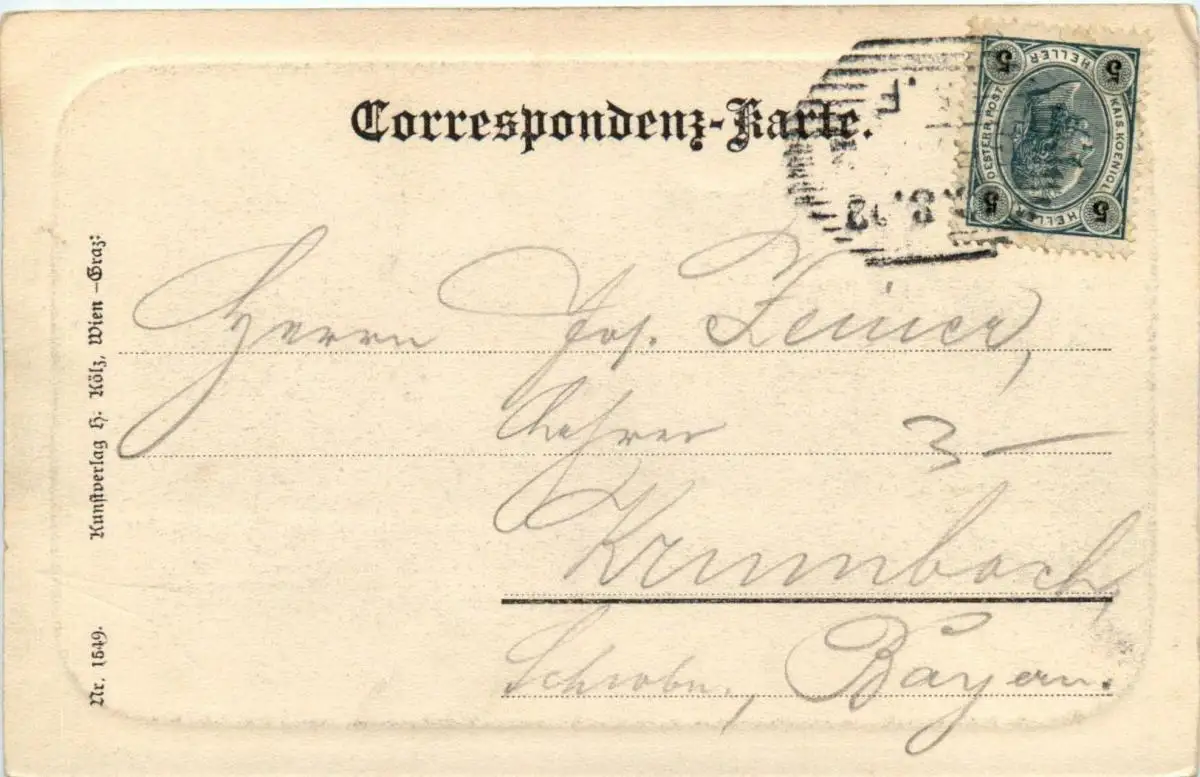 Correspondenz-Karte.
5 HELLER 5
KAIS. KOENIGL. OESTERR. POST.
5 HELLER 5
F.
Herrn Jos. Zeiner,
Lehrer 3 —
Krumbach,
Schwabn., Bayern.
Kunstverlag H. Kölz, Wien-Graz:
Nr. 1549.